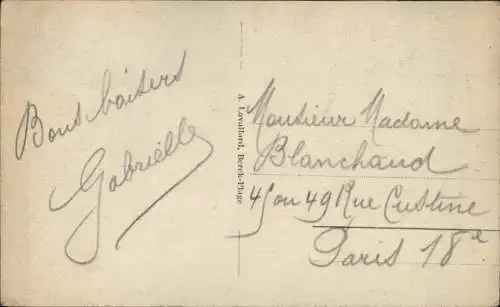 Bons baisers
Gabrielle
A. Lavallard, Berck-Plage
Monsieur Madame
Blanchaud
45 ou 49 Rue Custine
Paris 18e